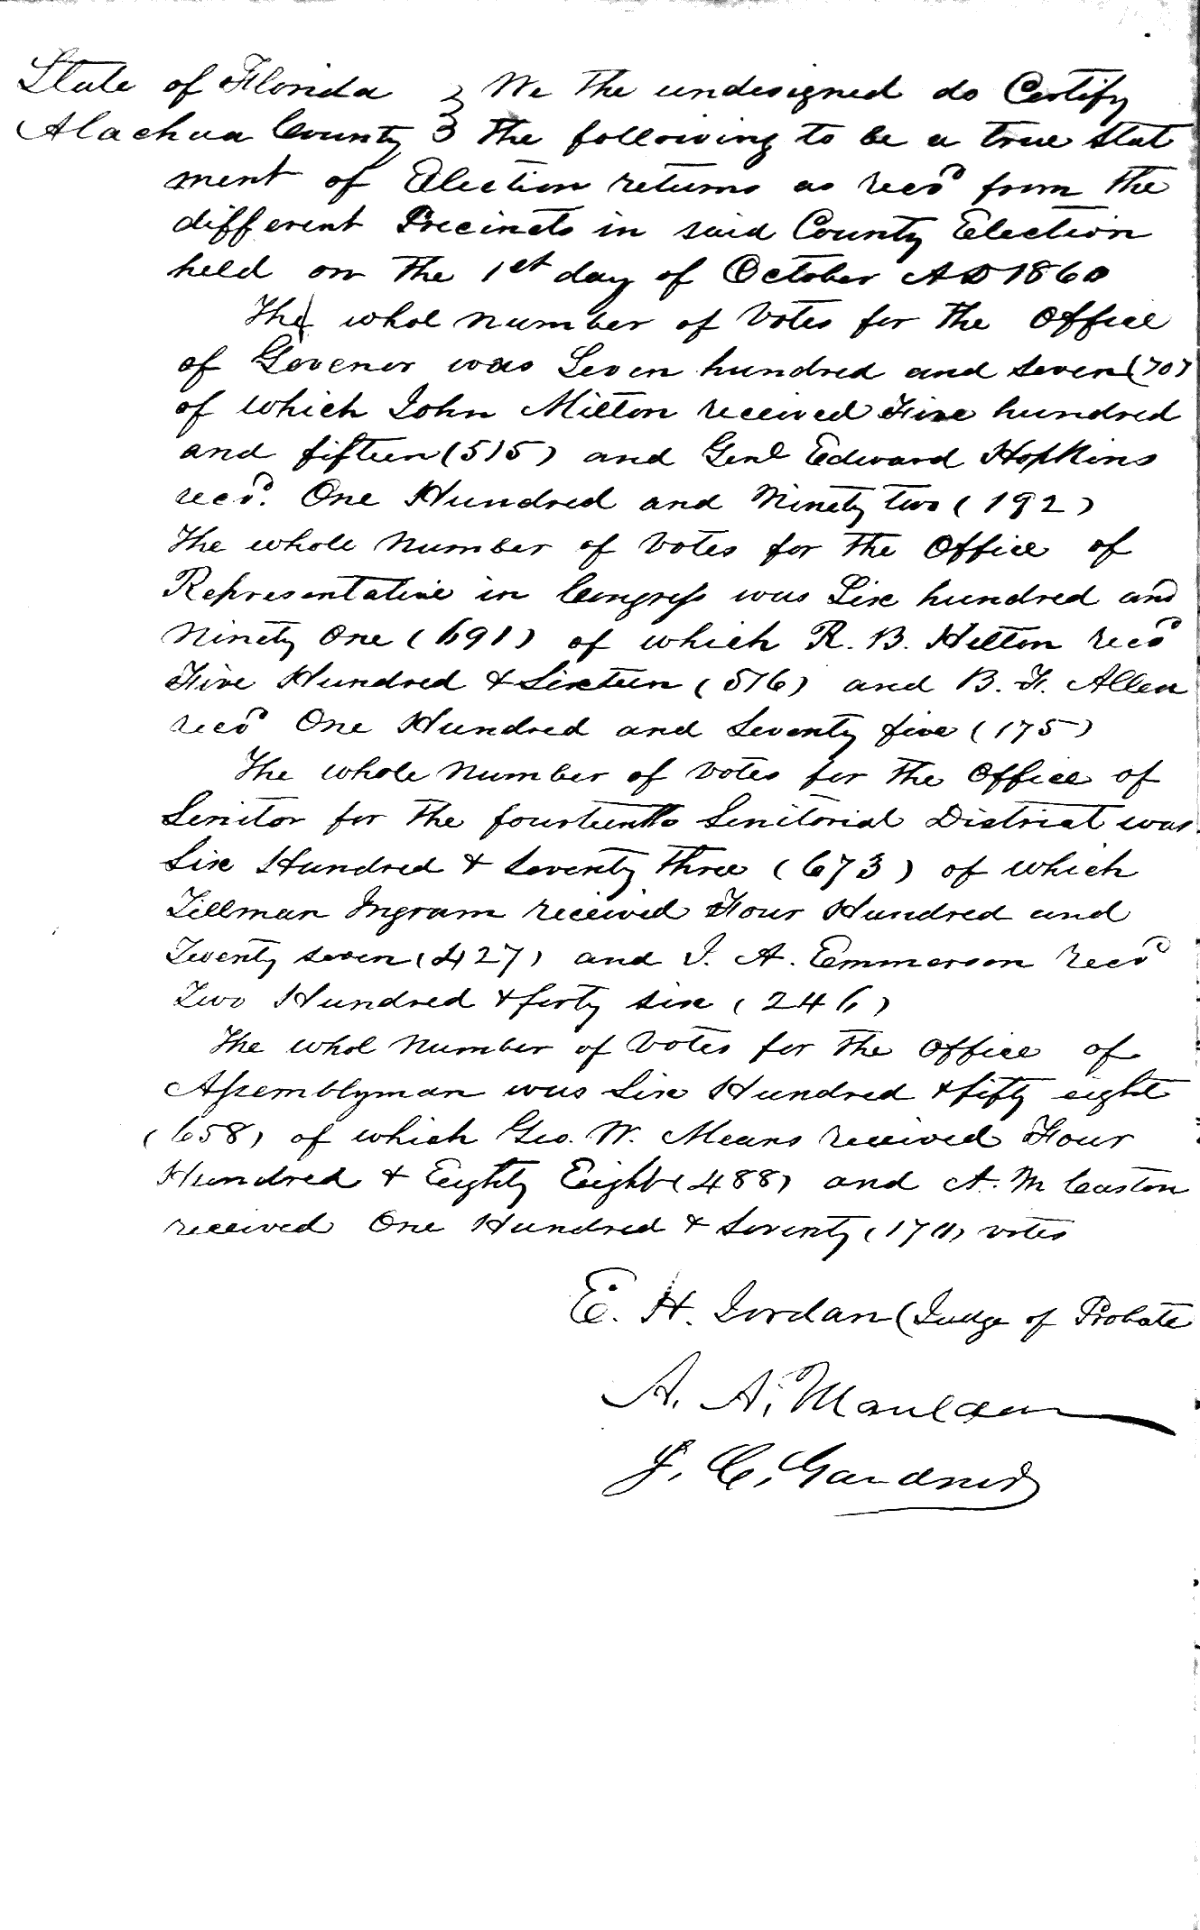 State of Florida } We the undesigned do Certify
Alachua County } the following to be a true stat
ment of Election returns as recd from the
different Precincts in said County Election
held on the 1st day of October AD 1860
The whol number of votes for the office
of Govenor was Seven hundred and seven (707
of which John Milton received Five hundred
and fifteen (515) and Genl Edward Hopkins
recd. One Hundred and Ninety two (192)
The whole number of votes for the office of
Representative in Congress was Six hundred and
Ninety One (691) of which R. B. Hilton recd
Five Hundred & Sixteen (516) and B. F. Allen
recd One Hundred and Seventy five (175)
The whole number of votes for the office of
Senitor for the fourteenth Senitorial District was
Six Hundred & seventy three (673) of which
Tillman Ingram received Four Hundred and
Twenty seven (427) and J. A. Emmerson recd
Two Hundred & forty six (246)
The whol number of votes for the office of
Assemblyman was Six Hundred & fifty eight
(658) of which Geo. W. Means received Four
Hundred & Eighty Eight (488) and A. M Caston
received One Hundred & Seventy (170) votes
E. H. Jordan (Judge of Probate
A. A. Mauldin
J. C. Gardner